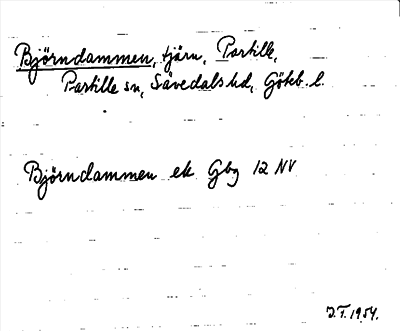 Björndammen, tjärn, Partille,
Partille sn, Sävedals hd, Göteb. l.
Björndammen ek Gbg 12 NV
J.T. 1954.